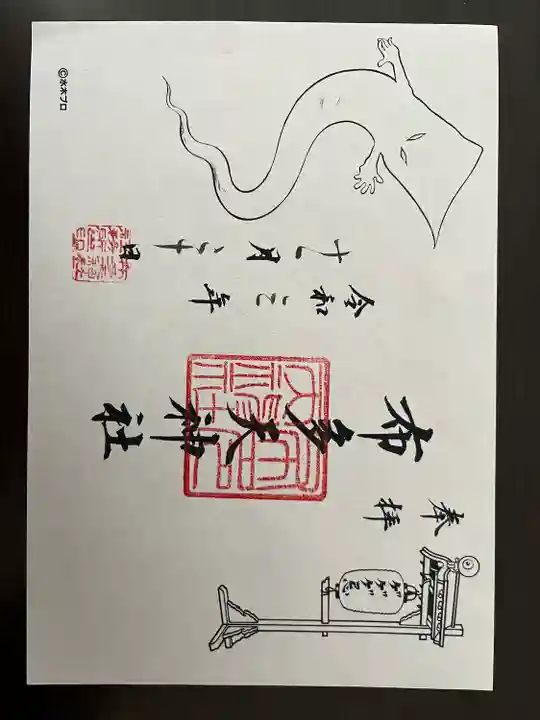 奉拝
ゲゲゲ忌
布多天神社
令和 年
十一月 十日
©水木プロ